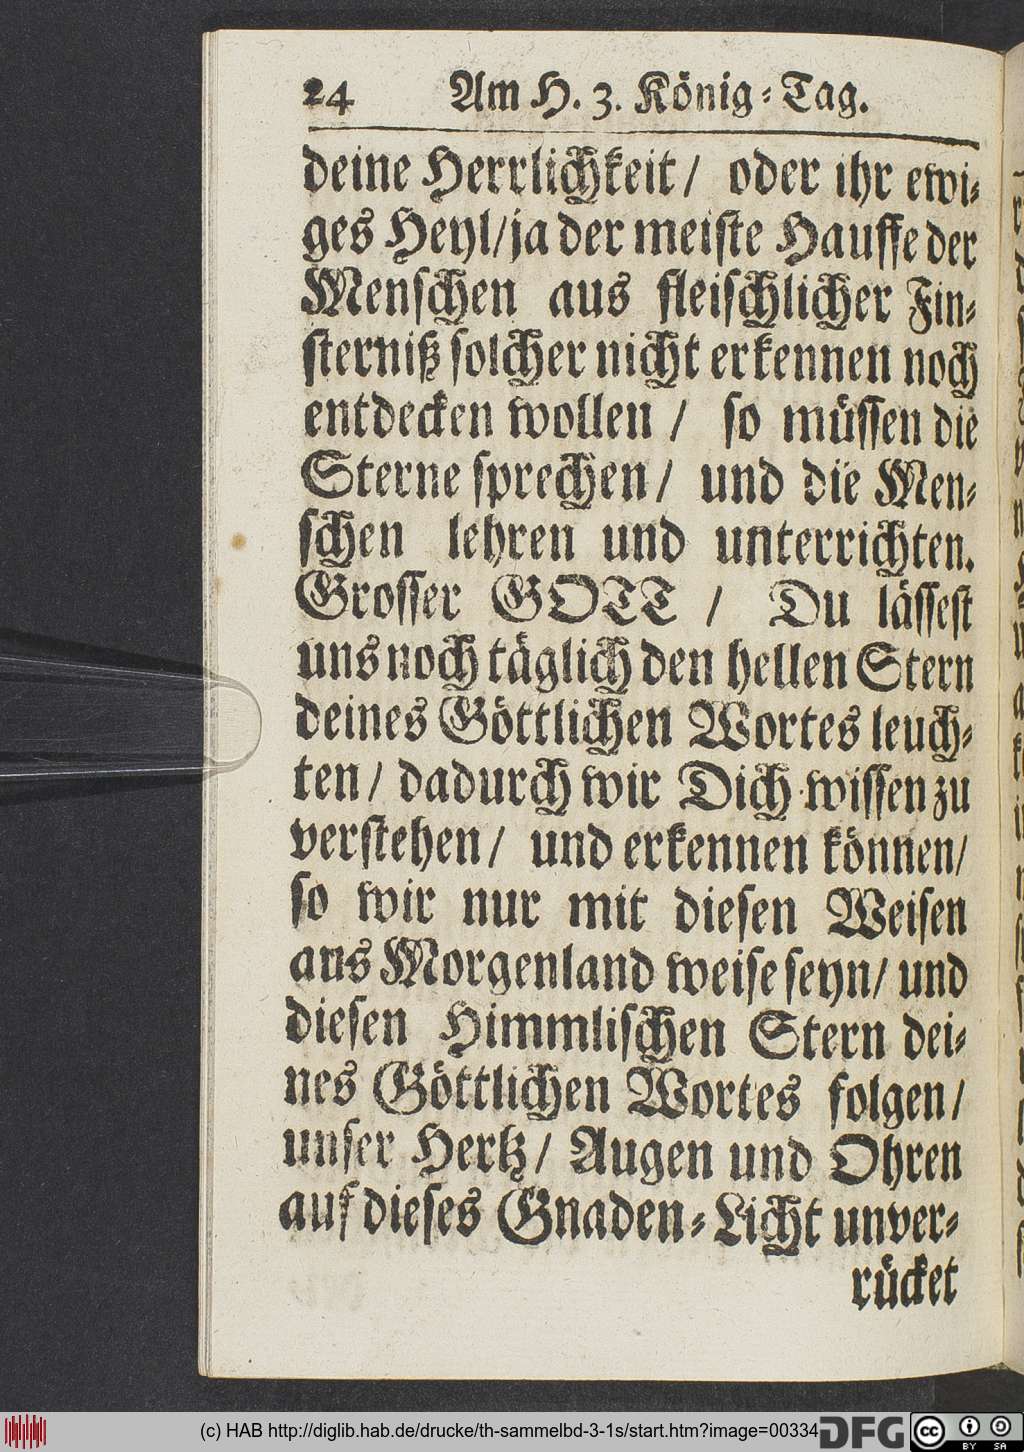 24 Am H. 3. König-Tag.
deine Herrlichkeit / oder ihr ewi-
ges Heyl / ja der meiste Hauffe der
Menschen aus fleischlicher Fin-
sterniß solcher nicht erkennen noch
entdecken wollen / so müssen die
Sterne sprechen / und die Men-
schen lehren und unterrichten.
Grosser GOTT / Du lässest
uns noch täglich den hellen Stern
deines Göttlichen Wortes leuch-
ten / dadurch wir Dich wissen zu
verstehen / und erkennen können /
so wir nur mit diesen Weisen
aus Morgenland weise seyn / und
diesen Himmlischen Stern dei-
nes Göttlichen Wortes folgen /
unser Hertz / Augen und Ohren
auf dieses Gnaden-Licht unver-
rücket
(c) HAB http://diglib.hab.de/drucke/th-sammelbd-3-1s/start.htm?image=00334
DFG
cc BY SA